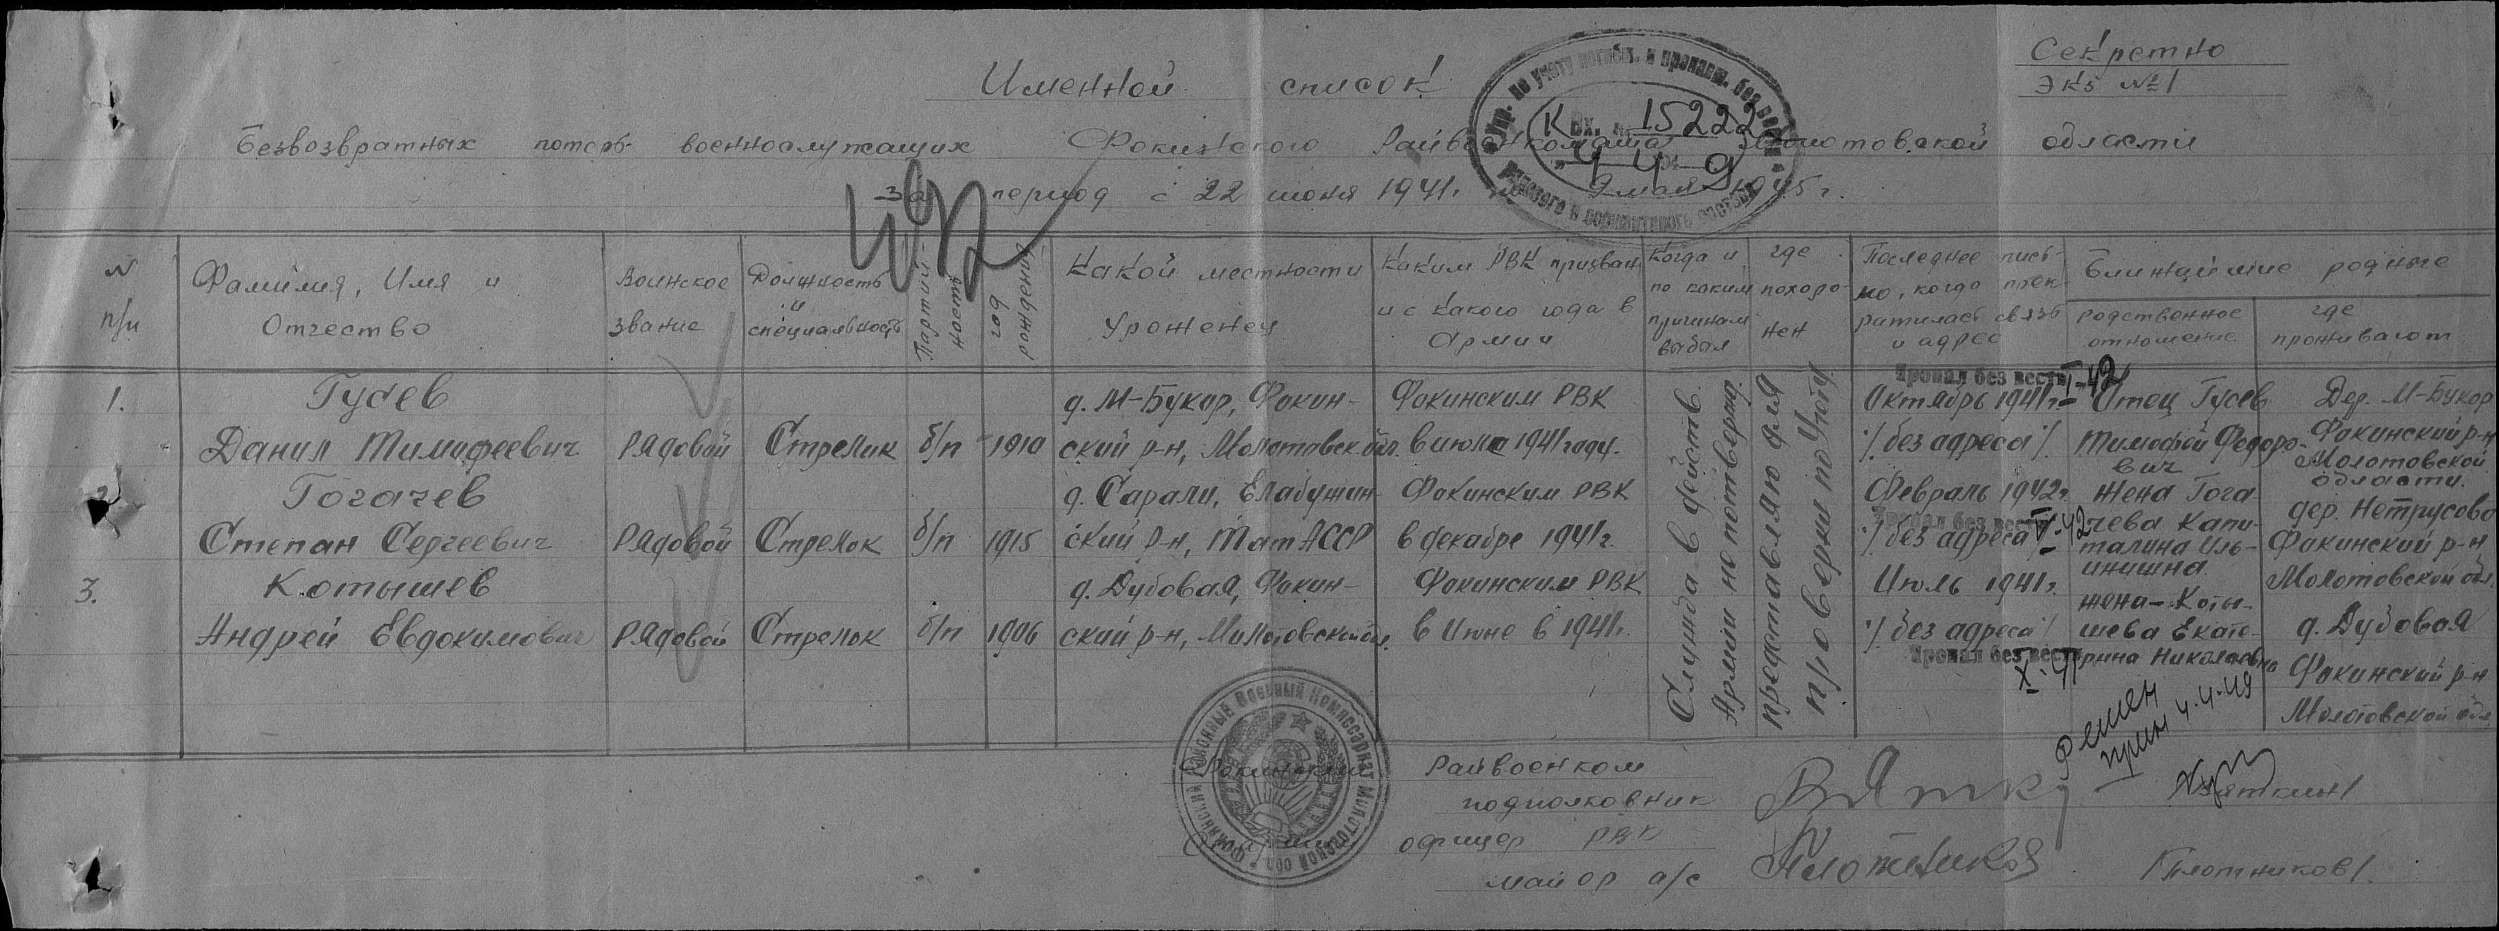 Секретно
Экз №1
Именной список
Безвозвратных потерь военнослужащих Фокинского Райвоенкомата Молотовской области
за период с 22 июня 1941г. по 9 мая 1945г.
492
Упр. по учету погибш. и пропавш. без вести
рядового и сержантского состава
Вх. № 15222 К
4 4 9
N п/п
Фамилия, Имя и Отчество
Воинское звание
Должность и специальность
Партийность
год рождения
Какой местности Уроженец
Каким РВК призван и с какого года в Армии
Когда и по каким причинам выбыл
где похоронен
Последнее письмо, когда прекратилась связь и адрес
Ближайшие родные
родственное отношение
где проживают
1.
Гусев
Данил Тимофеевич
Рядовой
Стрелок
б/п
1910
д. М-Букор, Фокин-
ский р-н, Молотовск. обл.
Фокинским РВК
в июле 1941 году.
Октябрь 1941г.
/без адреса/.
Пропал без вести I-42
Отец Гусев
Тимофей Федоро-
вич
Дер. М-Букор
Фокинский р-н
Молотовской
области.
2.
Гогачев
Степан Сергеевич
Рядовой
Стрелок
б/п
1915
д. Сарали, Елабужин-
ский р-н, Тат АССР
Фокинским РВК
в декабре 1941г.
Февраль 1942г.
Пропал без вести V-42
/без адреса/
Жена Гога
чева Капи-
талина Иль-
инишна
дер. Нетрусово
Фокинский р-н
Молотовской обл.
3.
Котышев
Андрей Евдокимович
Рядовой
Стрелок
б/п
1906
д. Дубовая, Фокин-
ский р-н, Молотовской обл.
Фокинским РВК
в Июне в 1941г.
Июль 1941г.
/без адреса/
Пропал без вести X-41
жена-Коты-
шева Екате-
рина Николаевна
д. Дубовая
Фокинский р-н
Молотовской обл
Служба в действ.
Армии не подтвержд.
представляю для
проверки по Учёту
прин 4.4.49
Фокинский Районный Военный Комиссариат Молотовской обл.
Фокинский Райвоенком
подполковник
/Вяткин/
офицер РВК
майор а/с
Плотников
/Плотников/.